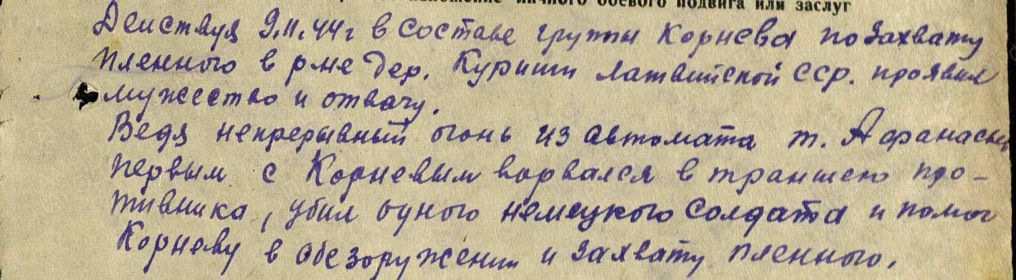 изложение личного боевого подвига или заслуг
Действуя 9.11.44г в составе группы Корнева по захвату
пленного в р-не дер. Куриши Латвийской ССР. проявил
мужество и отвагу.
Ведя непрерывный огонь из автомата т. Афанасьев
первым с Корневым ворвался в траншею про-
тивника, убил одного немецкого солдата и помог
Корневу в обезоружении и захвату пленного.